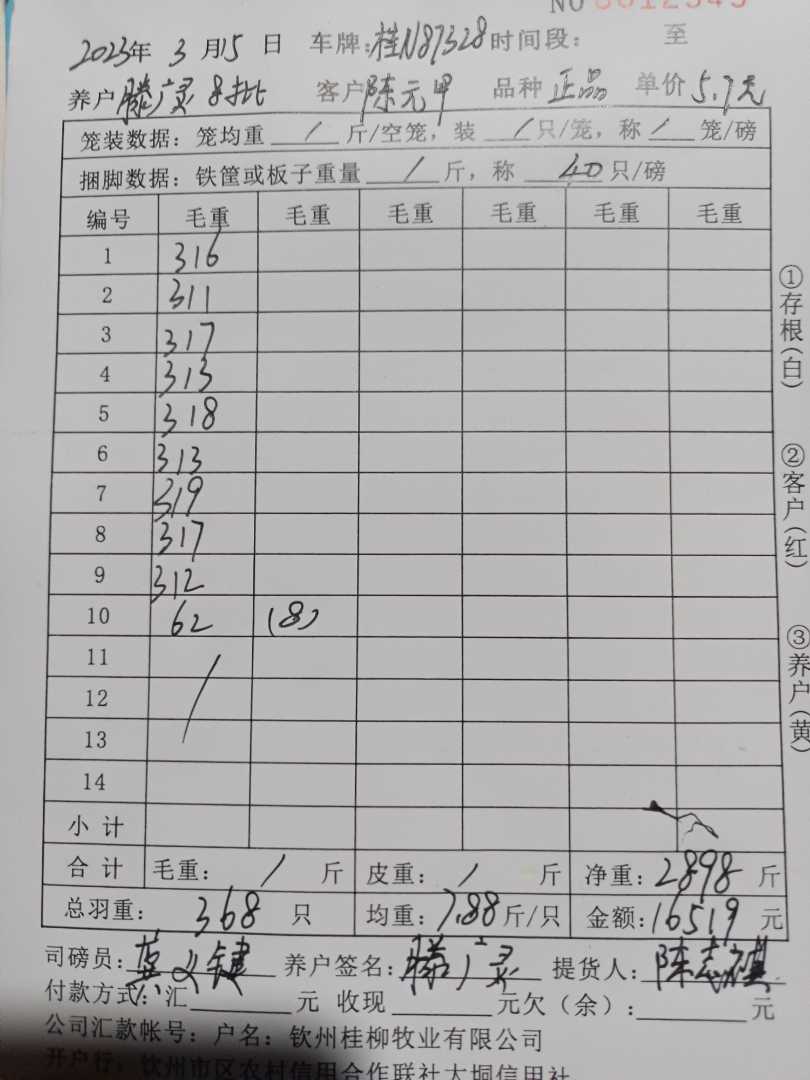 NO 0012345
2023年 3 月15 日 车牌:桂N87328 时间段: 至
养户 滕广灵 8批 客户 陈元甲 品种 正品 单价 5.7元
笼装数据: 笼均重 / 斤/空笼, 装 / 只/笼, 称 / 笼/磅
捆脚数据: 铁筐或板子重量 / 斤, 称 40 只/磅
编号 毛重 毛重 毛重 毛重 毛重 毛重
1 316
2 311
3 317
4 313
5 318
6 313
7 319
8 317
9 312
10 62 (8)
11 /
12
13
14
小计
合计 毛重: / 斤 皮重: / 斤 净重: 2898 斤
总羽重: 368 只 均重: 7.88 斤/只 金额: 16519 元
司磅员: 义键 养户签名: 滕广灵 提货人: 陈志祺
付款方式: 汇 元 收现 元欠(余): 元
公司汇款帐号: 户名: 钦州桂柳牧业有限公司
开户行: 钦州市区农村信用合作联社大垌信用社
①存根(白)
②客户(红)
③养户(黄)